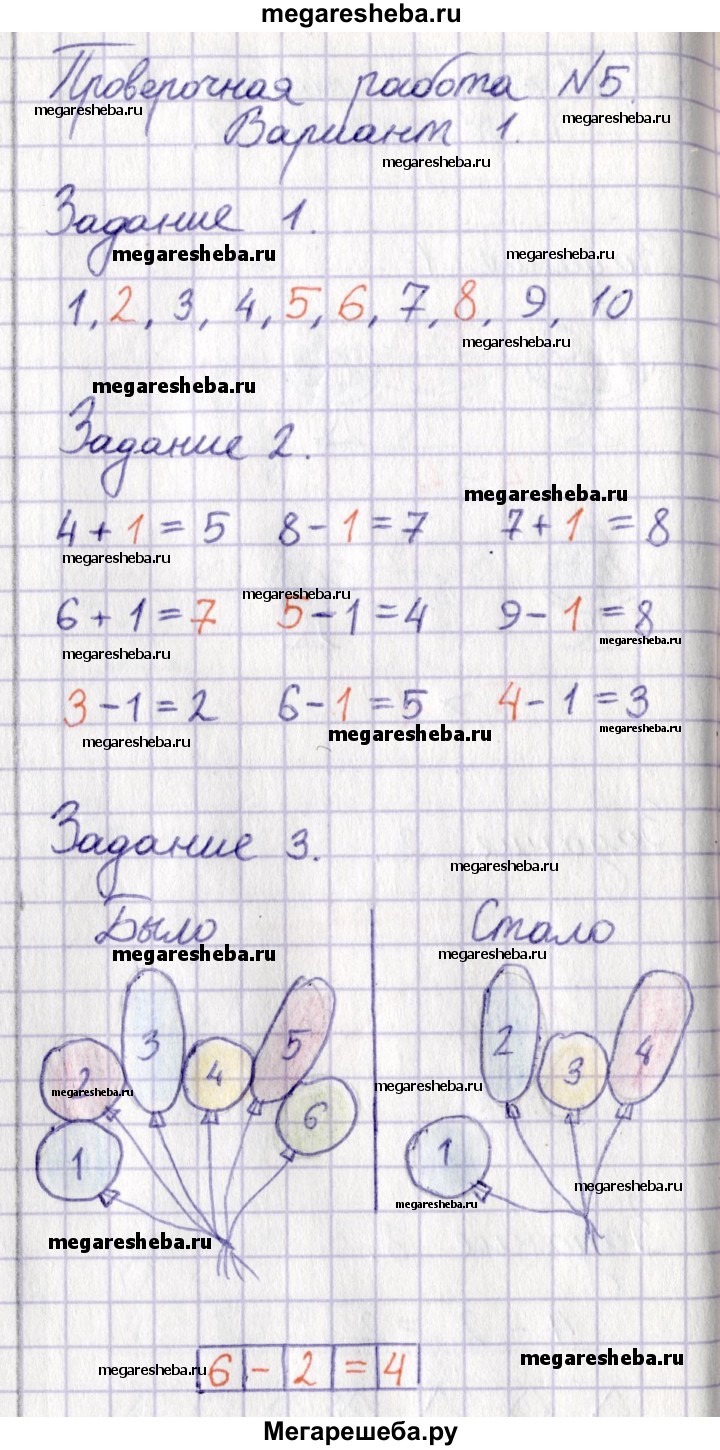 megaresheba.ru
Проверочная работа №5.
megaresheba.ru megaresheba.ru
Вариант 1.
megaresheba.ru
Задание 1.
megaresheba.ru megaresheba.ru
1, 2, 3, 4, 5, 6, 7, 8, 9, 10
megaresheba.ru
megaresheba.ru
Задание 2.
megaresheba.ru
4 + 1 = 5 8 - 1 = 7 7 + 1 = 8
megaresheba.ru
megaresheba.ru
6 + 1 = 7 5 - 1 = 4 9 - 1 = 8
megaresheba.ru megaresheba.ru
3 - 1 = 2 6 - 1 = 5 4 - 1 = 3
megaresheba.ru megaresheba.ru megaresheba.ru
Задание 3.
megaresheba.ru
Было Стало
megaresheba.ru megaresheba.ru
3 5 2 4
2 4 3
megaresheba.ru megaresheba.ru
6
1 1
megaresheba.ru megaresheba.ru
megaresheba.ru
6 - 2 = 4
megaresheba.ru megaresheba.ru
Мегарешеба.ру